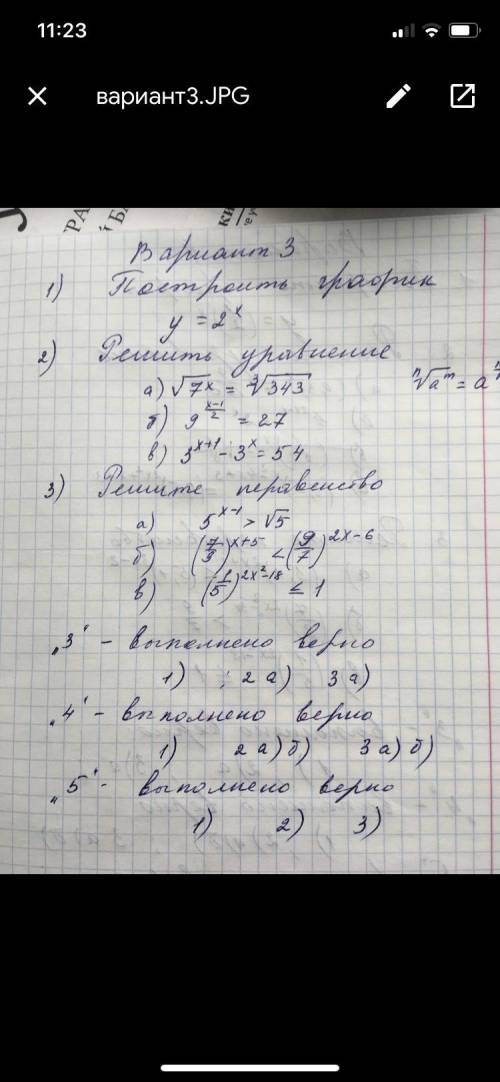 11:23
вариант3.JPG
Вариант 3
1) Построить график
y = 2^x
2) Решить уравнение
а) √7^x = ∛343 ⁿ√a^m = a
б) 9^((x-1)/2) = 27
в) 3^(x+1) - 3^x = 54
3) Решите неравенство
а) 5^(x-1) > √5
б) (7/9)^(x+5) < (9/7)^(2x-6)
в) (1/5)^(2x²-18) ≤ 1
„3“ - выполнено верно
1) ; 2 а) 3 а)
„4“ - выполнено верно
1) 2 а) б) 3 а) б)
„5“ - выполнено верно
1) 2) 3)